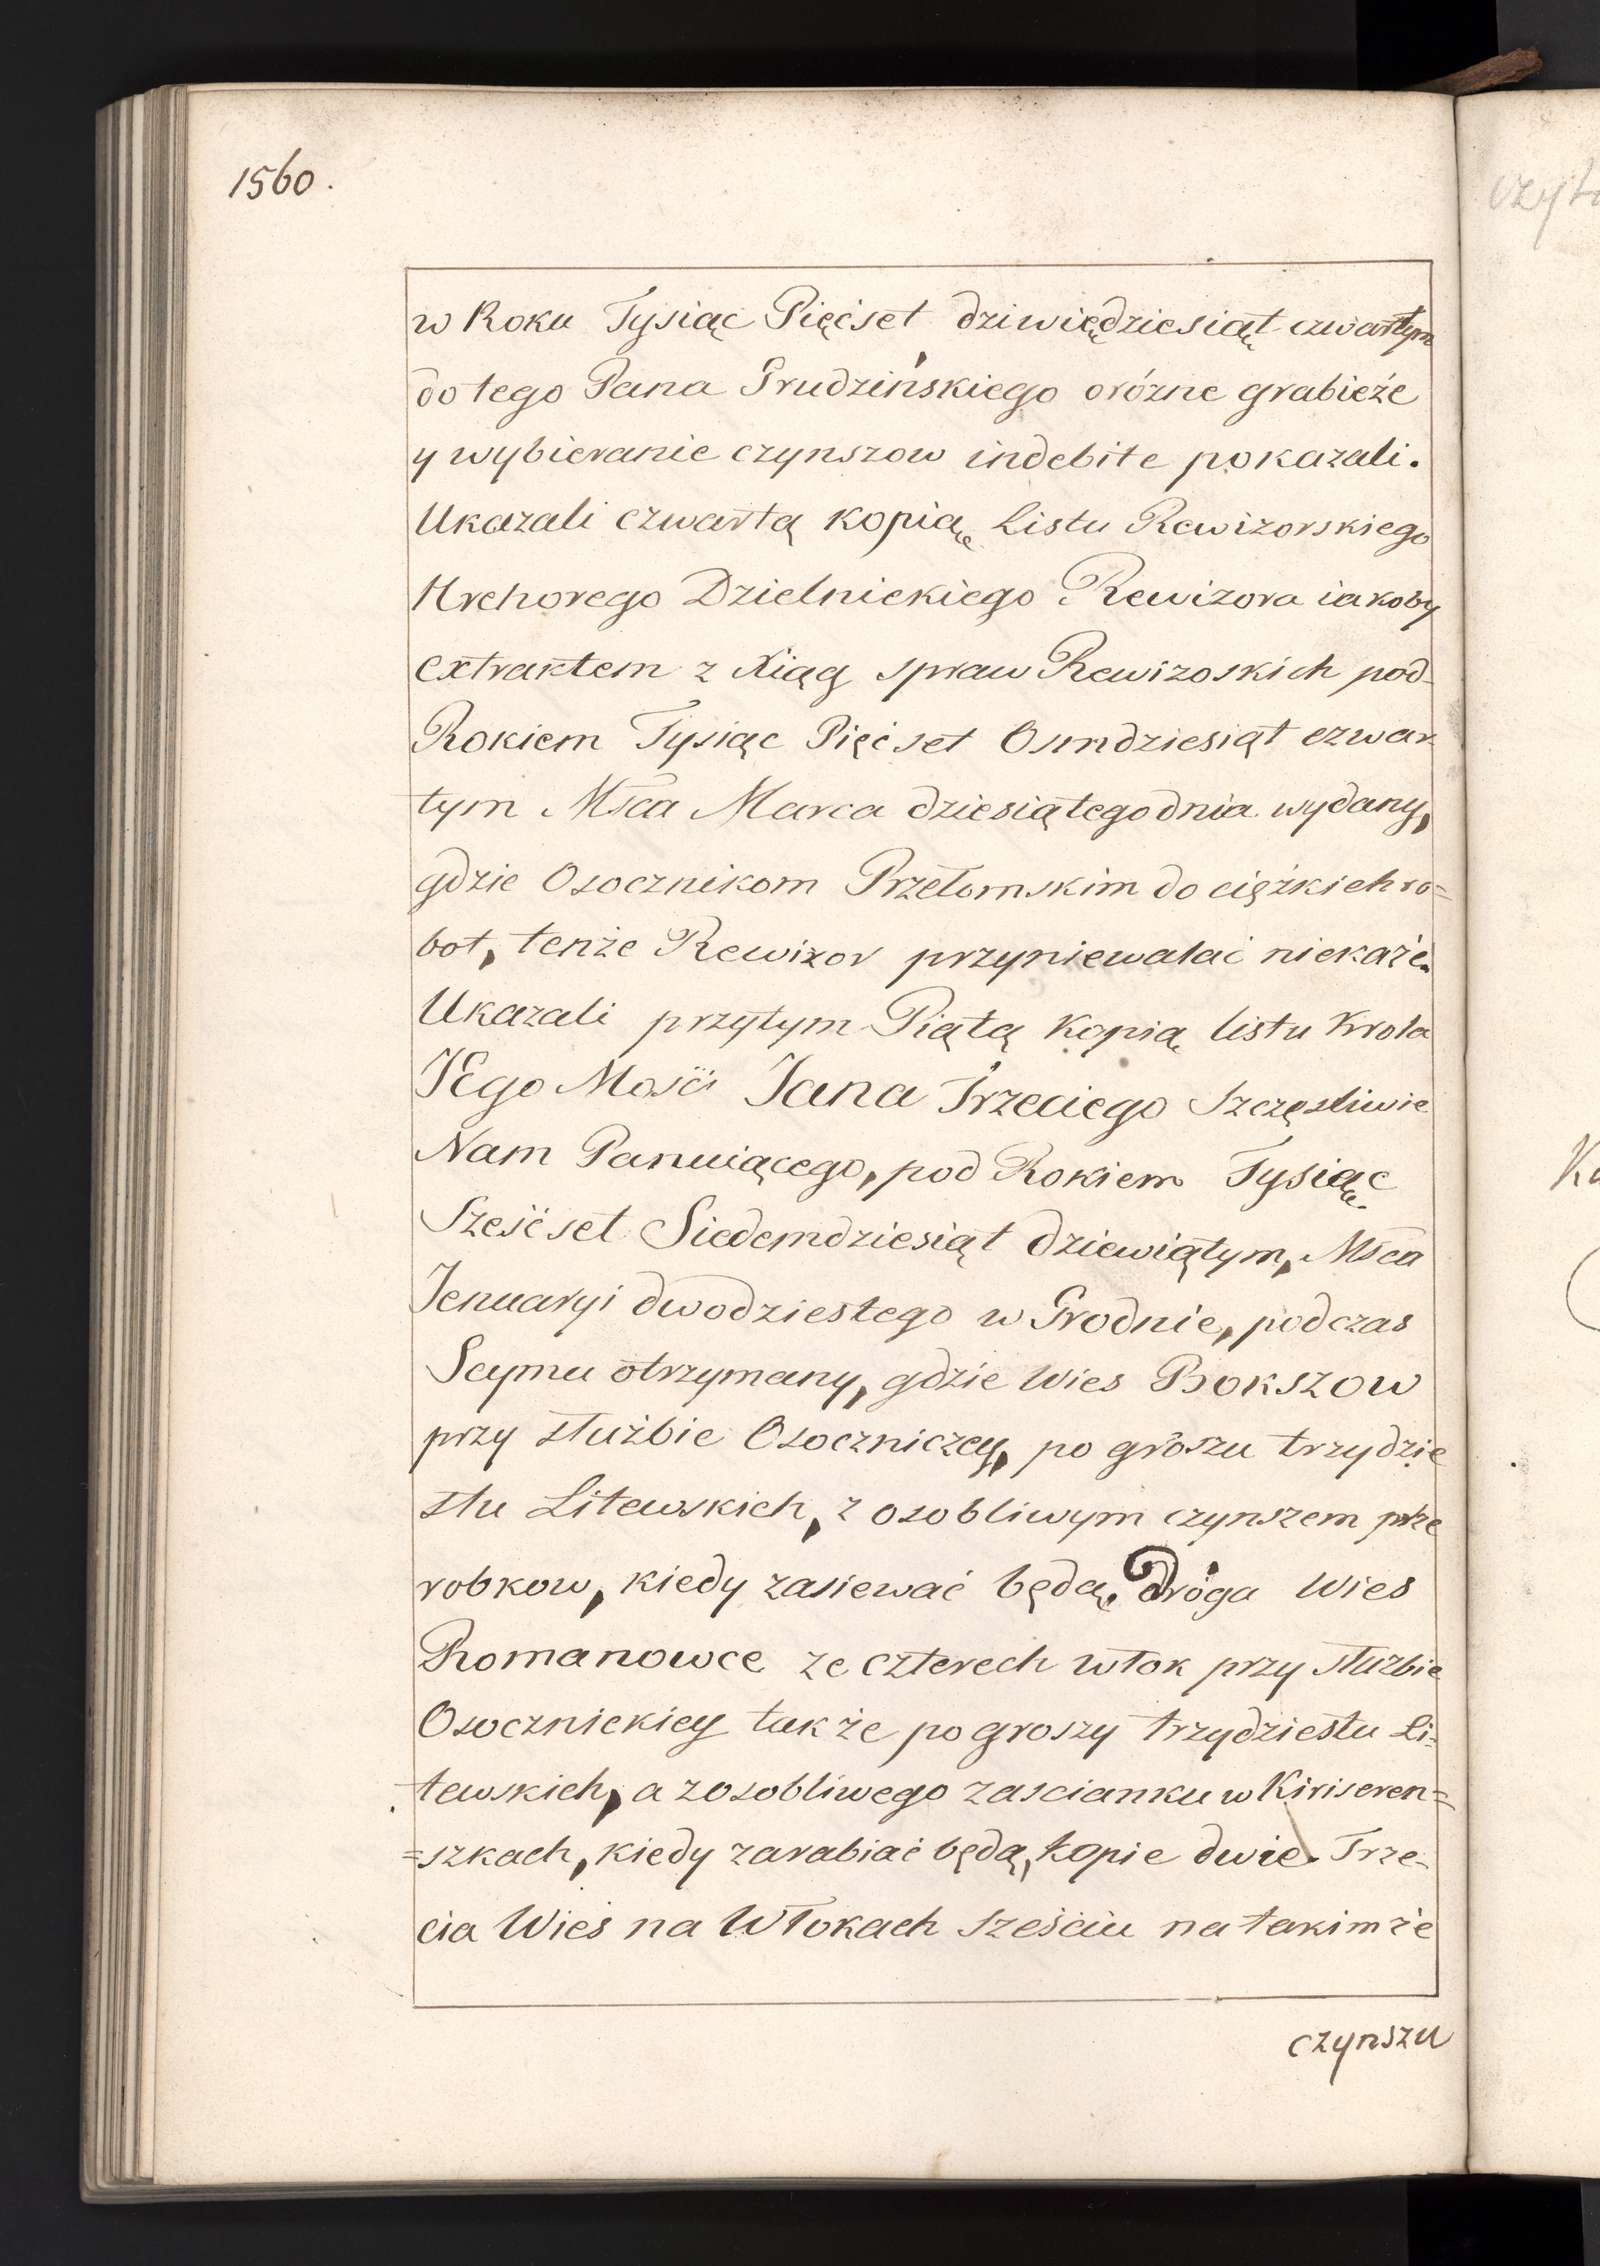 1560.
w Roku Tysiąc Pięćset dziwiędziesiąt czwartym
do tego Pana Grudzińskiego orózne grabieże
y wybieranie czynszow indebite pokazali.
Ukazali czwartą kopią Listu Rewizorskiego
Hrehorego Dzielnickiego Rewizora iakoby
extraktem z Xiąg spraw Rewizoskich pod
Rokiem Tysiąc Pięćset Osmdziesiąt czwar
tym Msca Marca dziesiątego dnia wydany,
gdzie Osocznikom Przełomskim do ciężkich ro=
bot, tenże Rewizor przyniewalać niekaże.
Ukazali przytym Piątą Kopią listu Krola
JEgo Mości Jana Trzeciego Szczęsliwie
Nam Panuiącego, pod Rokiem Tysiąc
Sześćset Siedemdziesiąt dziewiątym, Msca
Jenuaryi dwodziestego w Grodnie, podczas
Seymu otrzymany, gdzie Wies Bokszow
przy służbie Osoczniczey, po groszu trzydzie
stu Litewskich, z osobliwym czynszem prze
robkow, kiedy zasiewać będą. Droga Wies
Romanowce ze czterech włok przy służbie
Osocznickiey także po groszy trzydziestu Li=
tewskich, a zosobliwego zascianku w Kiriseren=
=szkach, kiedy zarabiać będą, kopie dwie. Trze-
cia Wieś na Włokach sześciu na takimże
czynszu